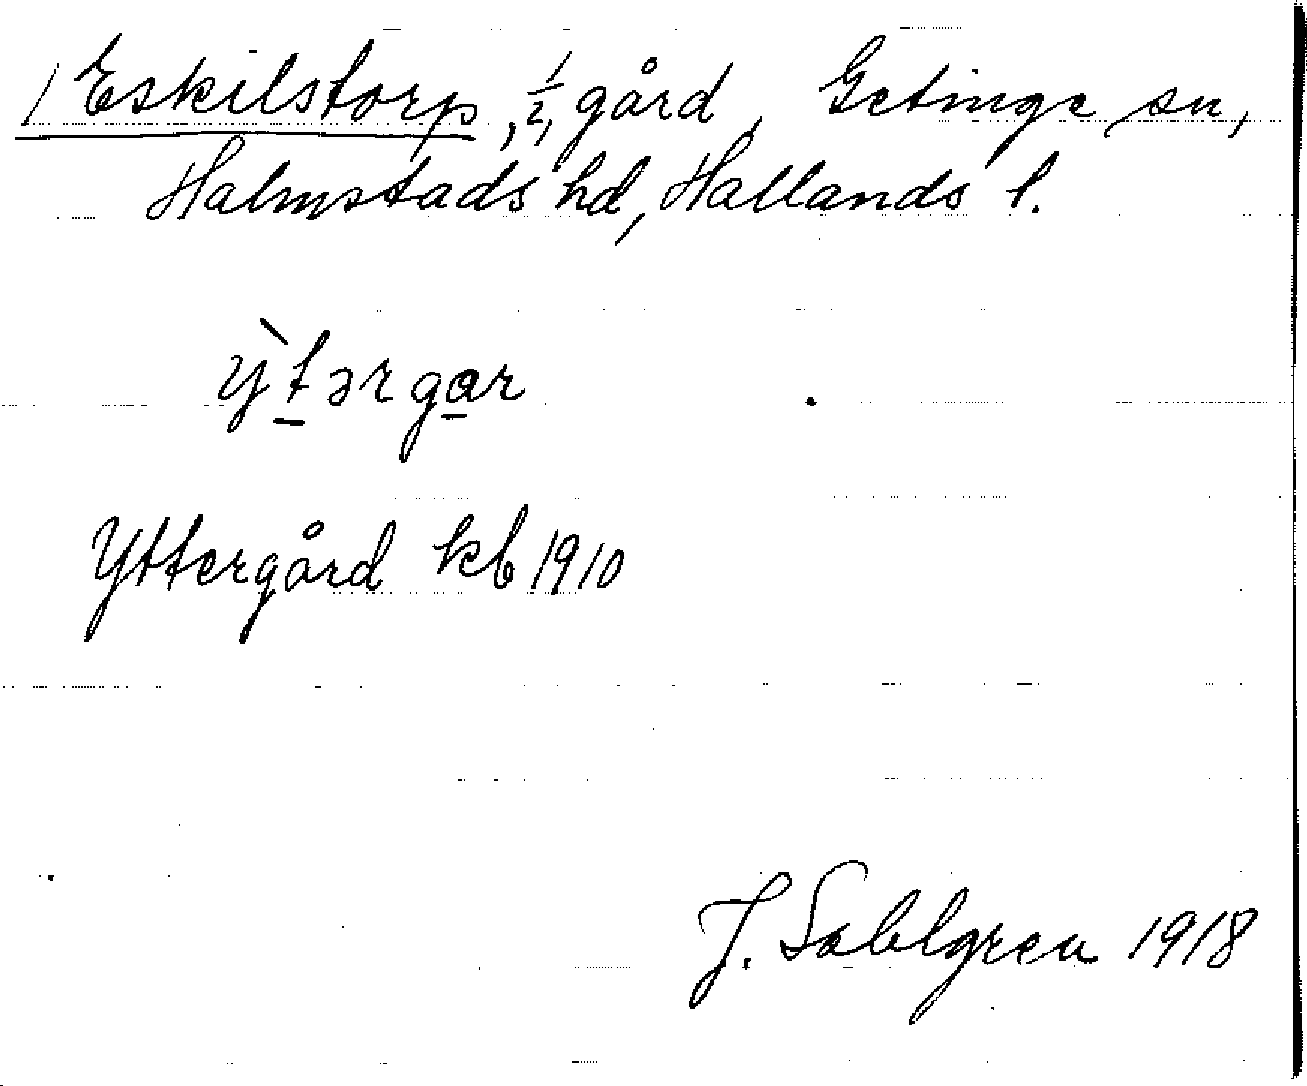 1 Eskilstorp, 1/2, gård, Getinge sn,
Halmstads hd, Hallands l.
ỳt̲ərga̲r
Yttergård kb 1910
J. Sahlgren 1918